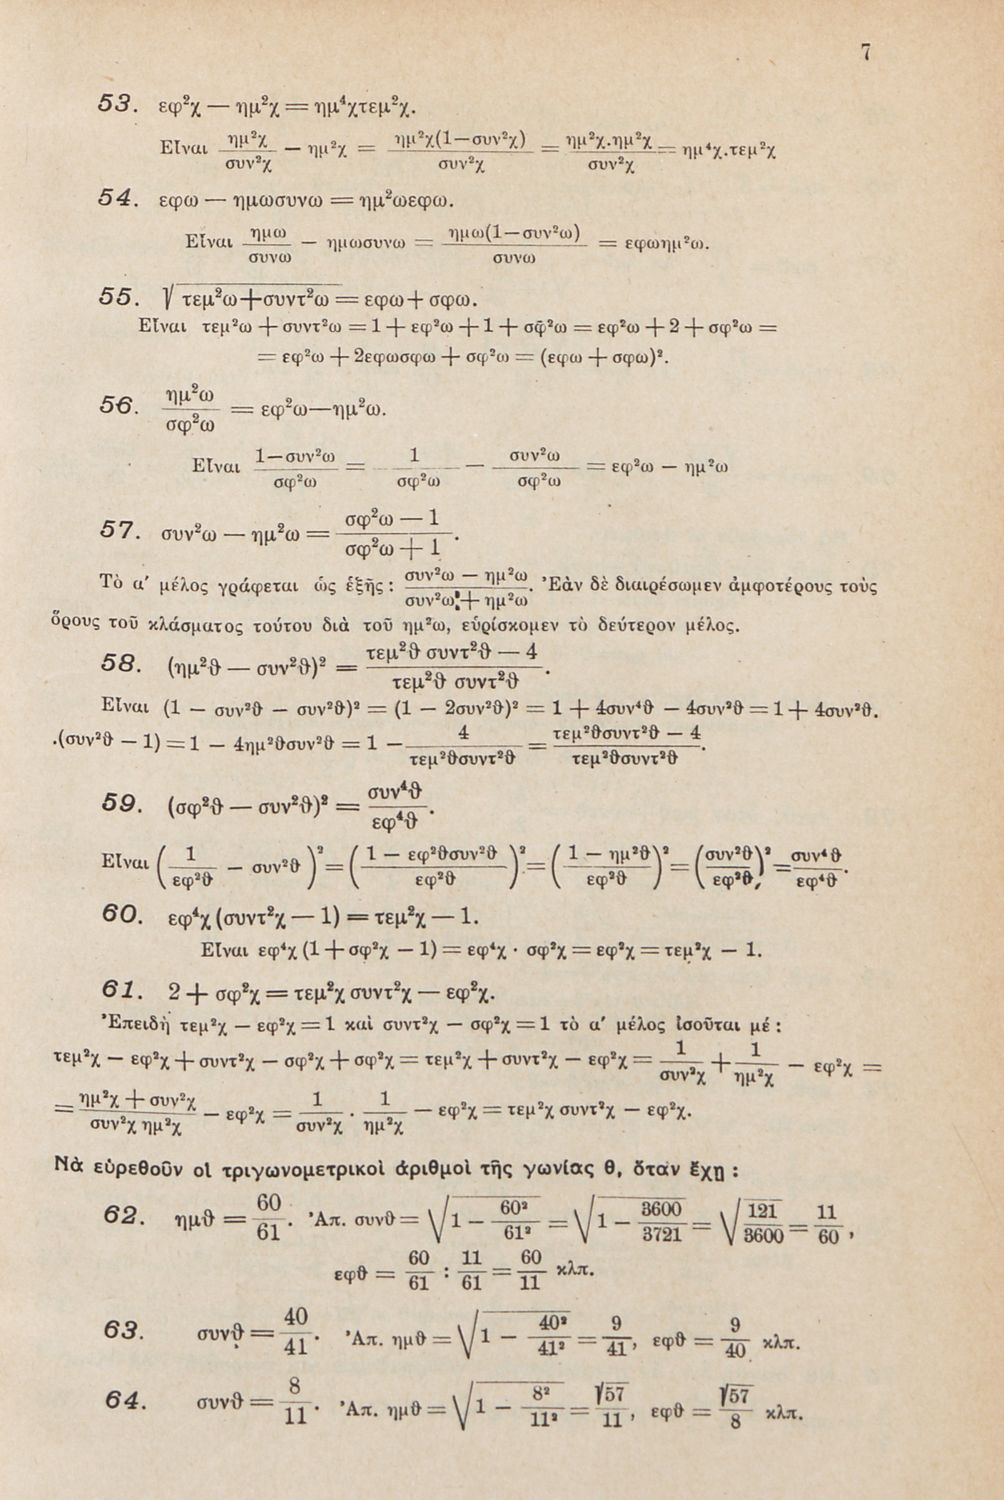 7
53. εφ²χ — ημ²χ = ημ⁴χτεμ²χ.
Εἶναι ημ²χ/συν²χ — ημ²χ = ημ²χ(1—συν²χ)/συν²χ = ημ²χ.ημ²χ/συν²χ = ημ⁴χ.τεμ²χ
54. εφω — ημωσυνω = ημ²ωεφω.
Εἶναι ημω/συνω — ημωσυνω = ημω(1—συν²ω)/συνω = εφωημ²ω.
55. √τεμ²ω+συντ²ω = εφω+σφω.
Εἶναι τεμ²ω + συντ²ω = 1 + εφ²ω + 1 + σφ²ω = εφ²ω + 2 + σφ²ω =
= εφ²ω + 2εφωσφω + σφ²ω = (εφω + σφω)².
56. ημ²ω/σφ²ω = εφ²ω—ημ²ω.
Εἶναι 1—συν²ω/σφ²ω = 1/σφ²ω — συν²ω/σφ²ω = εφ²ω — ημ²ω
57. συν²ω — ημ²ω = σφ²ω — 1/σφ²ω + 1.
Τὸ α′ μέλος γράφεται ὡς ἑξῆς: συν²ω — ημ²ω/συν²ω + ημ²ω. Ἐὰν δὲ διαιρέσωμεν ἀμφοτέρους τοὺς
ὅρους τοῦ κλάσματος τούτου διὰ τοῦ ημ²ω, εὑρίσκομεν τὸ δεύτερον μέλος.
58. (ημ²ϑ — συν²ϑ)² = τεμ²ϑ συντ²ϑ — 4/τεμ²ϑ συντ²ϑ.
Εἶναι (1 — συν²ϑ — συν²ϑ)² = (1 — 2συν²ϑ)² = 1 + 4συν⁴ϑ — 4συν²ϑ = 1 + 4συν²ϑ.
.(συν²ϑ — 1) = 1 — 4ημ²ϑσυν²ϑ = 1 — 4/τεμ²ϑσυντ²ϑ = τεμ²ϑσυντ²ϑ — 4/τεμ²ϑσυντ²ϑ.
59. (σφ²ϑ — συν²ϑ)² = συν⁴ϑ/εφ⁴ϑ.
Εἶναι (1/εφ²ϑ — συν²ϑ)² = (1 — εφ²ϑσυν²ϑ/εφ²ϑ)² = (1 — ημ²ϑ/εφ²ϑ)² = (συν²ϑ/εφ²ϑ)² = συν⁴ϑ/εφ⁴ϑ.
60. εφ⁴χ (συντ²χ — 1) = τεμ²χ — 1.
Εἶναι εφ⁴χ (1 + σφ²χ — 1) = εφ⁴χ · σφ²χ = εφ²χ = τεμ²χ — 1.
61. 2 + σφ²χ = τεμ²χ συντ²χ — εφ²χ.
Ἐπειδὴ τεμ²χ — εφ²χ = 1 καὶ συντ²χ — σφ²χ = 1 τὸ α′ μέλος ἰσοῦται μέ:
τεμ²χ — εφ²χ + συντ²χ — σφ²χ + σφ²χ = τεμ²χ + συντ²χ — εφ²χ = 1/συν²χ + 1/ημ²χ — εφ²χ =
= ημ²χ + συν²χ/συν²χ ημ²χ — εφ²χ = 1/συν²χ · 1/ημ²χ — εφ²χ = τεμ²χ συντ²χ — εφ²χ.
Νὰ εὑρεθοῦν οἱ τριγωνομετρικοὶ ἀριθμοὶ τῆς γωνίας θ, ὅταν ἔχῃ :
62. ημϑ = 60/61. Ἀπ. συνϑ = √1 — 60²/61² = √1 — 3600/3721 = √121/3600 = 11/60,
εφϑ = 60/61 : 11/61 = 60/11 κλπ.
63. συνϑ = 40/41. Ἀπ. ημϑ = √1 — 40²/41² = 9/41, εφϑ = 9/40 κλπ.
64. συνϑ = 8/11. Ἀπ. ημϑ = √1 — 8²/11² = √57/11, εφϑ = √57/8 κλπ.